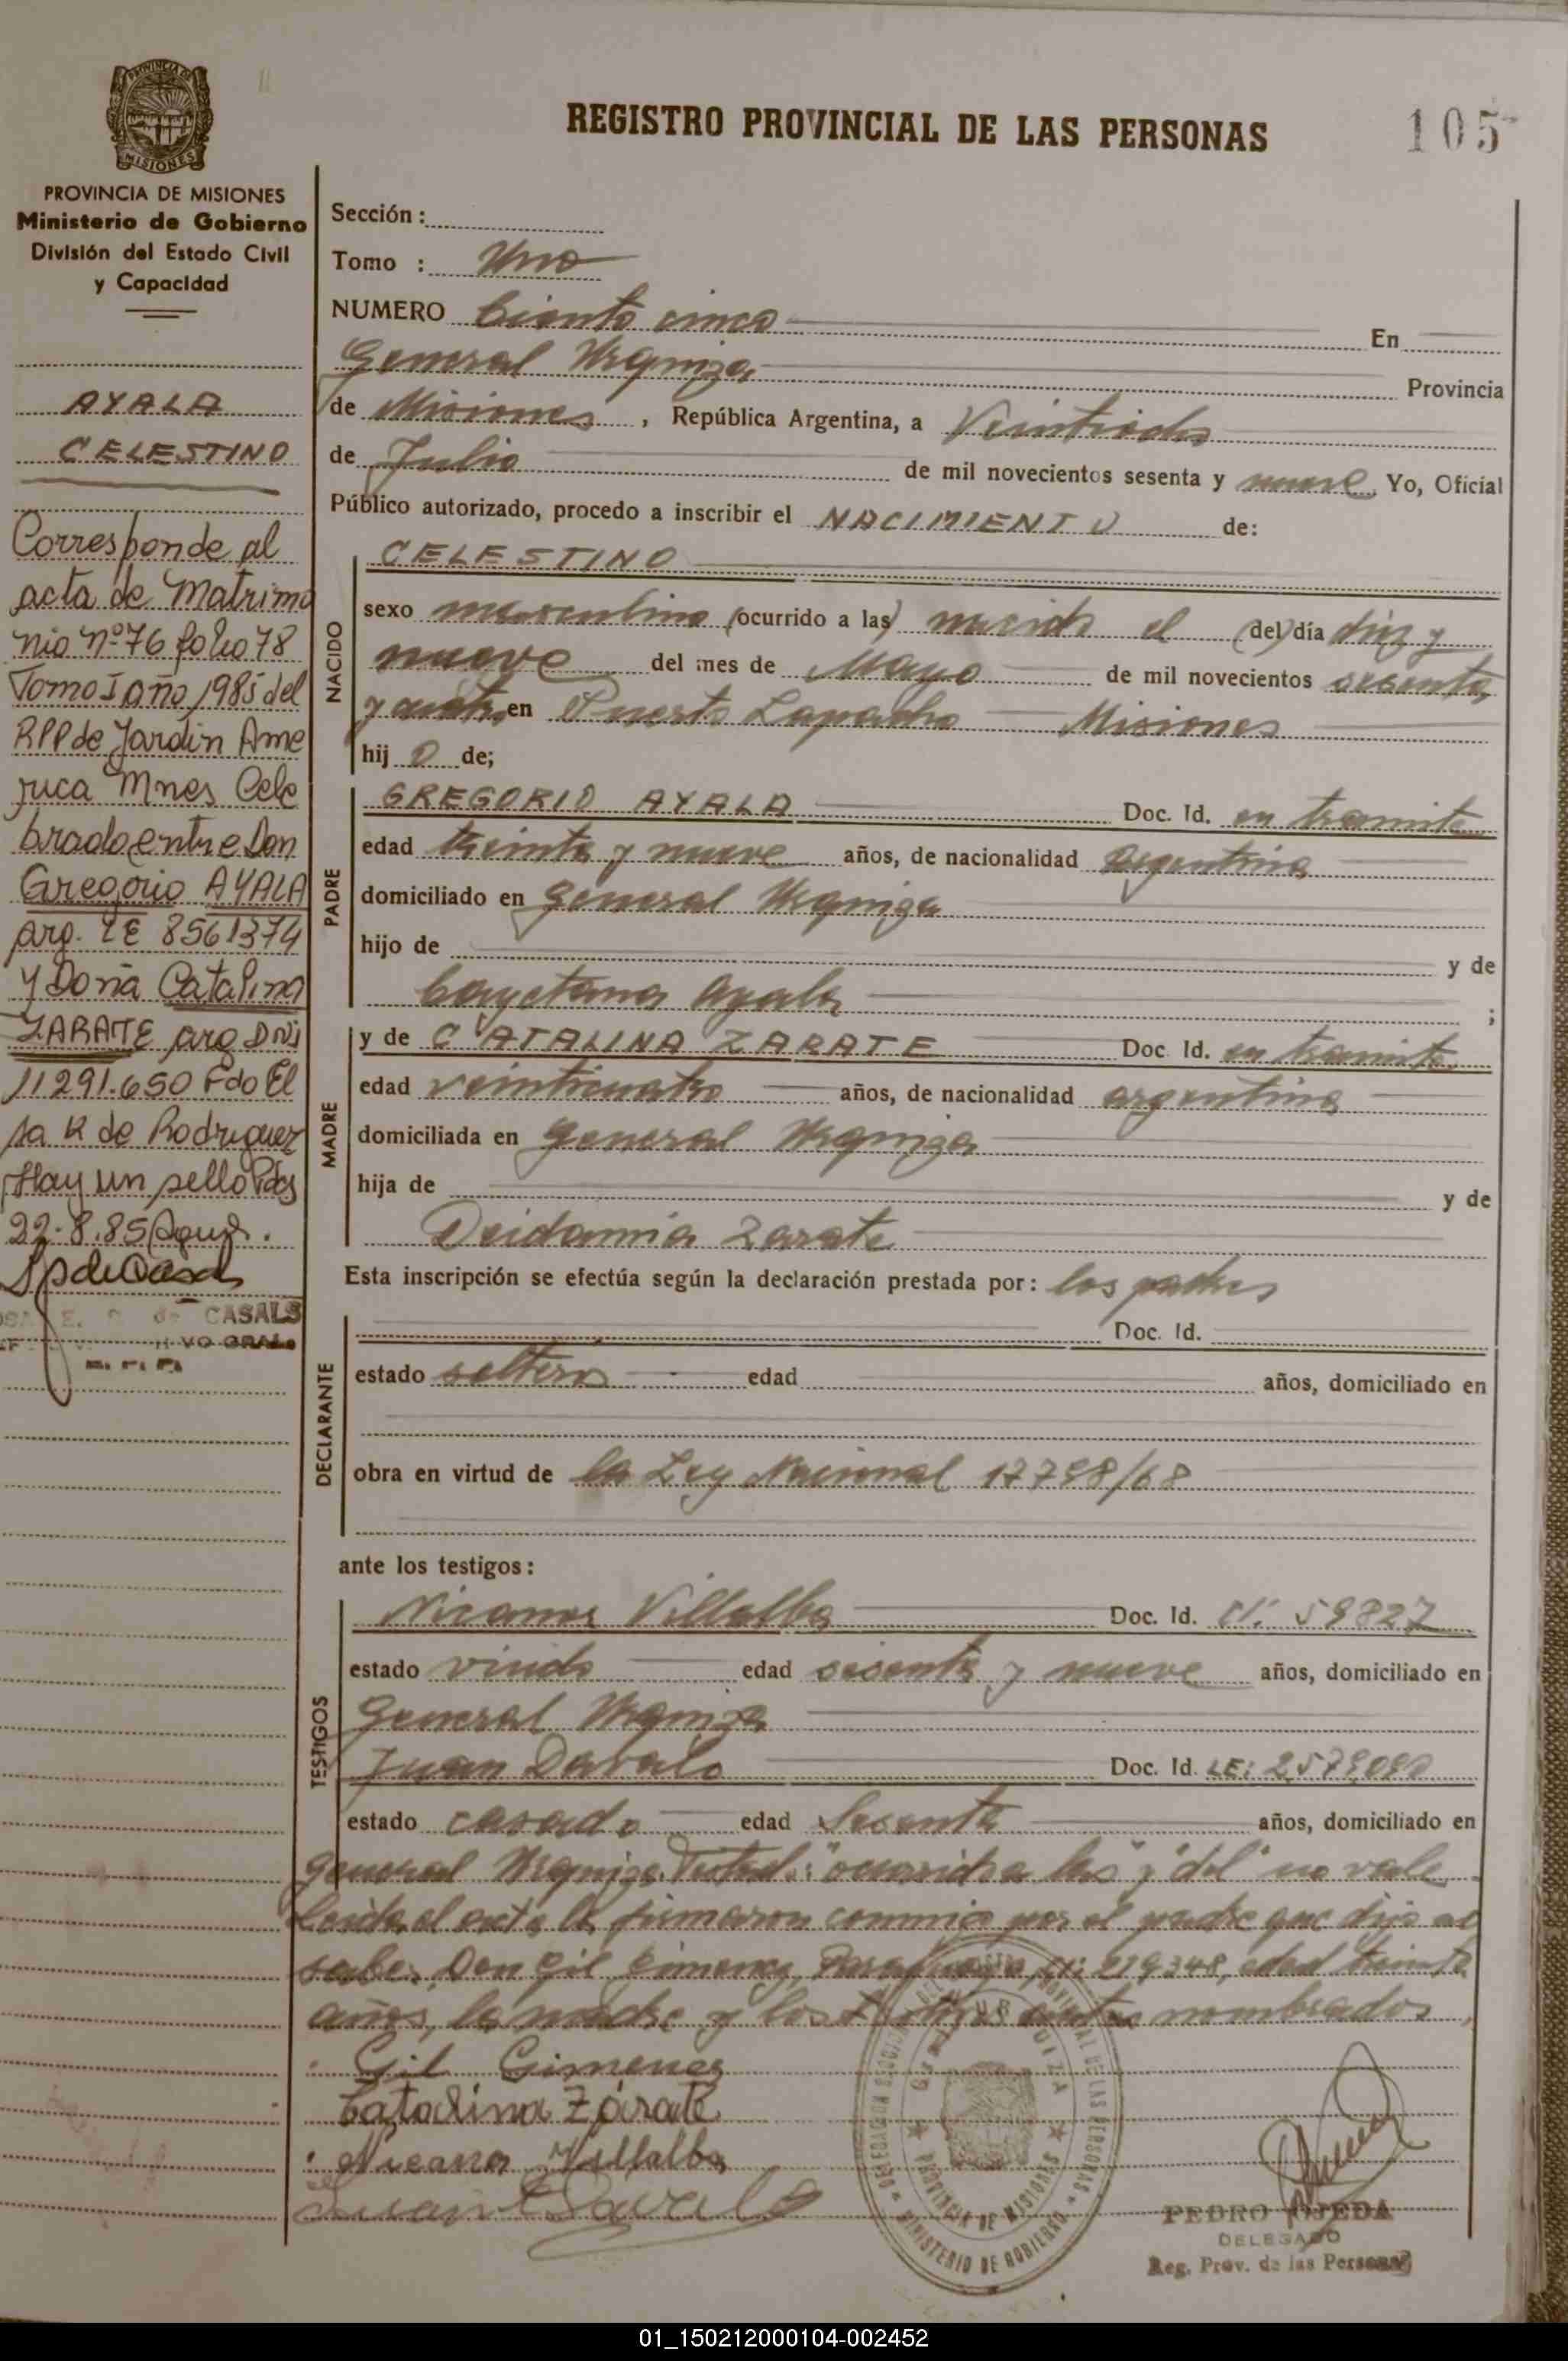 PROVINCIA DE MISIONES
PROVINCIA DE MISIONES
Ministerio de Gobierno
División del Estado Civil
y Capacidad
AYALA
CELESTINO
Corresponde al
acta de Matrimo
nio nº 76 folio 78
Tomo I año 1985 del
RPP de Jardin Ame
rica Mnes Cele
brado entre Don
Gregorio AYALA
arg. LE 8561374
y Doña Catalina
ZARATE arg DNi
11291.650 Fdo El
sa K de Rodriguez
Hay un sello Pdas
22.8.85
CASALS
REGISTRO PROVINCIAL DE LAS PERSONAS
105
Sección:
Tomo : Uno
NUMERO Ciento cinco En
General Urquiza Provincia
de Misiones, República Argentina, a Veintidos
de Julio de mil novecientos sesenta y nueve Yo, Oficial
Público autorizado, procedo a inscribir el NACIMIENTO de:
NACIDO
CELESTINO
sexo masculino (ocurrido a las) nacido el (del) día diez y
nueve del mes de Mayo de mil novecientos sesenta
y cuatro en Puerto Lapacho Misiones
hij o de;
PADRE
GREGORIO AYALA Doc. Id. en tramite
edad treinta y nueve años, de nacionalidad argentina
domiciliado en General Urquiza
hijo de y de
Cayetana Ayala ;
MADRE
y de CATALINA ZARATE Doc Id. en tramite
edad veinticuatro años, de nacionalidad argentina
domiciliada en General Urquiza
hija de y de
Deidamia Zarate
Esta inscripción se efectúa según la declaración prestada por: los padres
DECLARANTE
Doc. Id.
estado solteros edad años, domiciliado en
obra en virtud de la Ley Nacional 17798/68
ante los testigos:
TESTIGOS
Nicanor Villalba Doc. Id. CI: 59827
estado viudo edad sesenta y nueve años, domiciliado en
General Urquiza
Juan Davalo Doc. Id. LE: 2.579.090
estado casado edad Sesenta años, domiciliado en
General Urquiza. Testado: "ocurrido a las" y "del" no vale.
Leida el acta la firmaron conmigo por el padre que dijo no
saber, Don Gil Gimenez, Paraguayo, CI: 219348, edad treinta
años, la madre y los testigos antes nombrados.
Gil Gimenez
Catalina Zárate
Nicanor Villalba
Juan Davalo
PROVINCIA DE MISIONES
MINISTERIO DE GOBIERNO
PEDRO OJEDA
DELEGADO
Reg. Prov. de las Personas
01_150212000104-002452